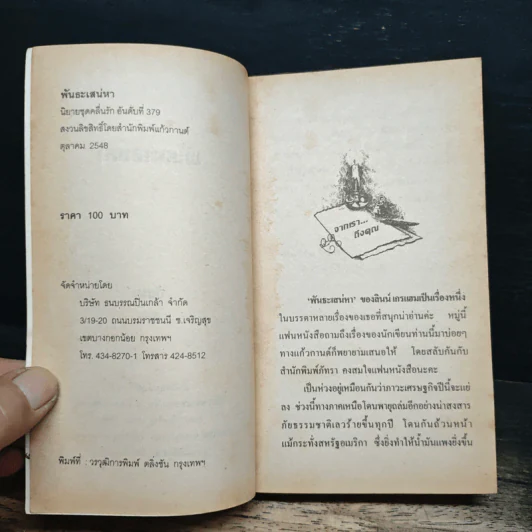 พันธะเสน่หา
นิยายชุดคลื่นรัก อันดับที่ 379
สงวนลิขสิทธิ์โดยสำนักพิมพ์แก้วกานต์
ตุลาคม 2548
ราคา 100 บาท
จัดจำหน่ายโดย
บริษัท ธนบรรณปิ่นเกล้า จำกัด
3/19-20 ถนนบรมราชชนนี ซ.เจริญสุข
เขตบางกอกน้อย กรุงเทพฯ
โทร. 434-8270-1 โทรสาร 424-8512
พิมพ์ที่ : วรวุฒิการพิมพ์ ตลิ่งชัน กรุงเทพฯ
จากเรา...
ถึงคุณ
'พันธะเสน่หา' ของลินน์ เกรแฮมเป็นเรื่องหนึ่ง
ในบรรดาหลายเรื่องของเธอที่สนุกน่าอ่านค่ะ หมู่นี้
แฟนหนังสือถามถึงเรื่องของนักเขียนท่านนี้มาบ่อยๆ
ทางแก้วกานต์ก็พยายามเสนอให้ โดยสลับกันกับ
สำนักพิมพ์ภัทรา คงสมใจแฟนหนังสือนะคะ
เป็นห่วงอยู่เหมือนกันว่าภาวะเศรษฐกิจปีนี้จะแย่
ลง ช่วงนี้ทางภาคเหนือโดนพายุถล่มอีกอย่างน่าสงสาร
ภัยธรรมชาติเลวร้ายขึ้นทุกปี โดนกันถ้วนหน้า
แม้กระทั่งสหรัฐอเมริกา ซึ่งยิ่งทำให้น้ำมันแพงยิ่งขึ้น